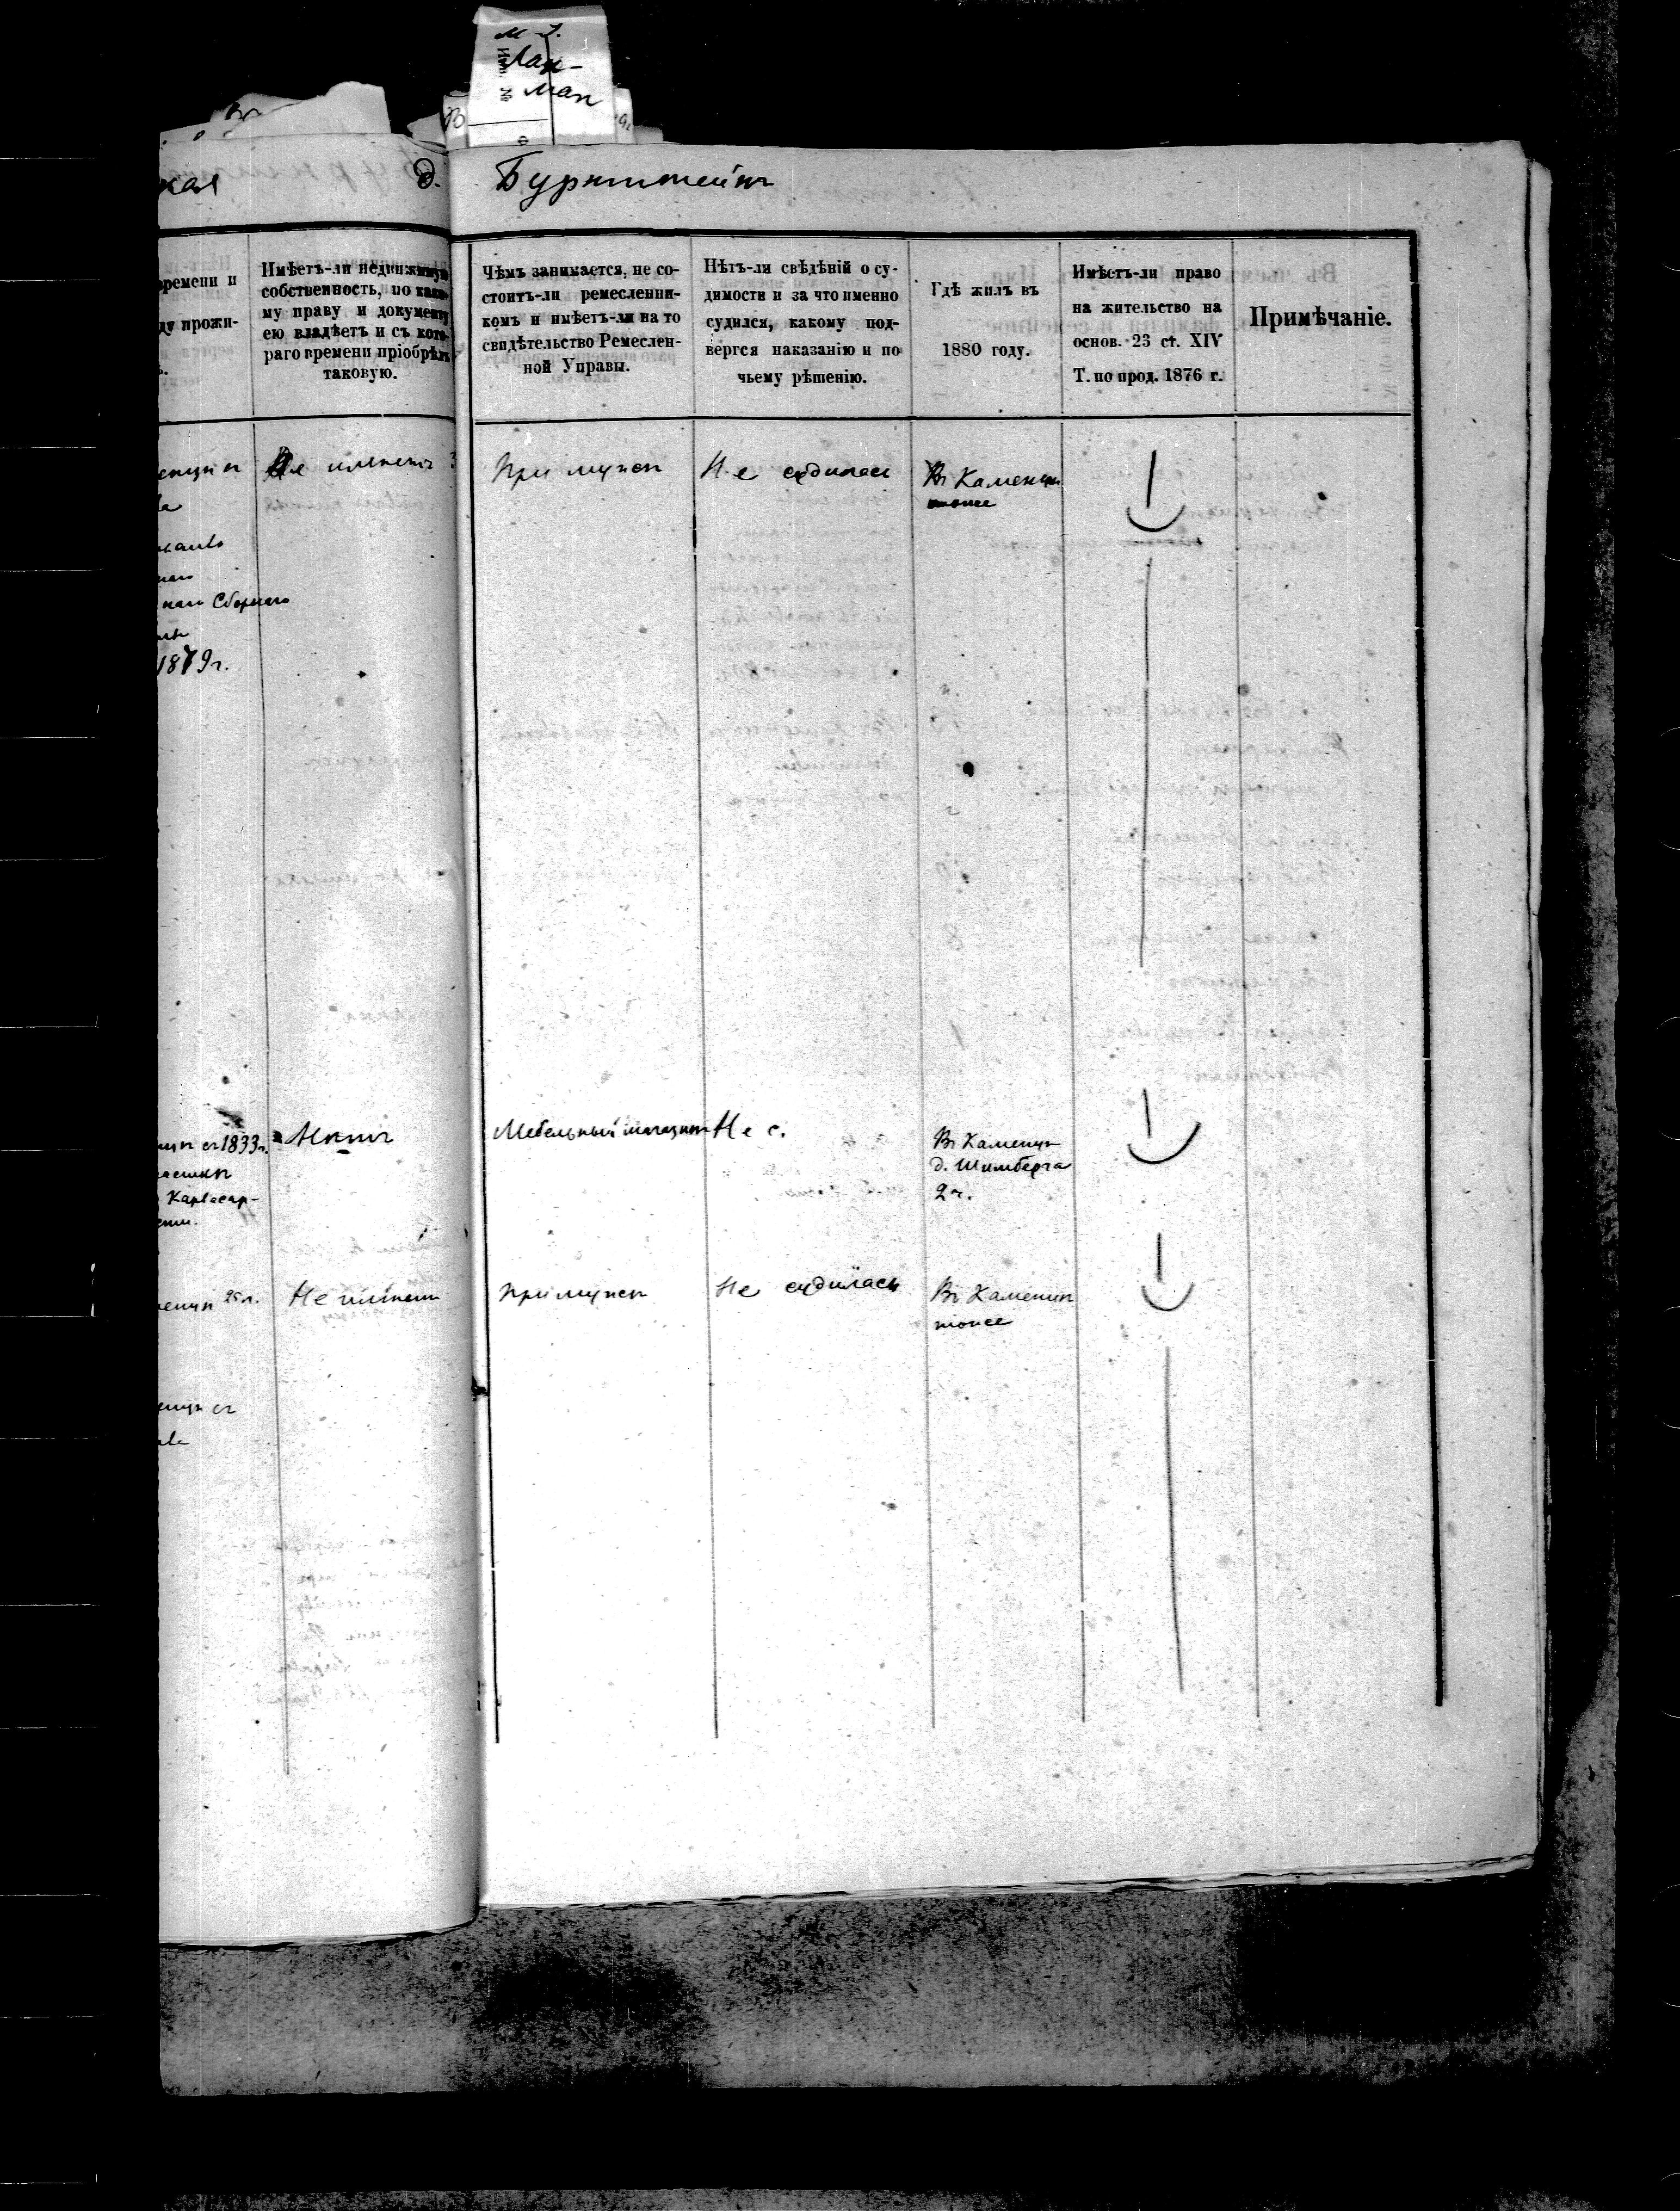 Лах-
ман
Инв. №
кая д. Бурштейнъ
времени и
ду прожи-
Имѣетъ-ли недвижимую
собственность, по како-
му праву и документу
ею владѣетъ и съ кото-
раго времени пріобрѣлъ
таковую.
Чѣмъ занимается, не со-
стоитъ-ли ремесленни-
комъ и имѣетъ-ли на то
свидѣтельство Ремеслен-
ной Управы.
Нѣтъ-ли свѣдѣній о су-
димости и за что именно
судился, какому под-
вергся наказанію и по
чьему рѣшенію.
Гдѣ жилъ въ
1880 году.
Имѣетъ-ли право
на жительство на
основ. 23 ст. XIV
Т. по прод. 1876 г.
Примѣчаніе.
Не имѣетъ
При мужѣ
Не судилась
Въ Каменцѣ
тоже
наго Сборнаго
1879 г.
съ 1833 г.
Карвасар-
Нѣтъ
Мебельный магазинъ
Не с.
Въ Каменцѣ
д. Шимберга
2 ч.
25 л.
Не имѣетъ
При мужѣ
Не судилась
Въ Каменцѣ
тоже